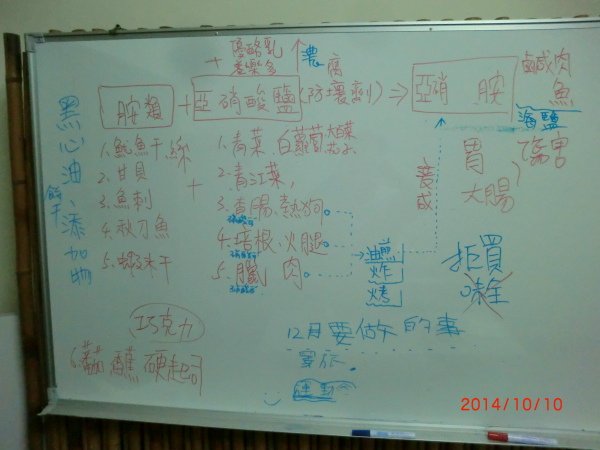 優酪乳
+ 養樂多 ↑濃
胺類 + 亞硝酸鹽 (防壞劑) → 亞硝胺
腐
鹹肉
魚
海鹽
1. 魷魚干絲
2. 干貝
3. 魚刺
4. 秋刀魚
5. 蝦米干
巧克力
6. 蕃茄 醬 硬起司
+
1. 青菜 白蘿蔔
2. 青江菜,
3. 香腸、熱狗
4. 培根、火腿
5. 臘肉
油煎
炸
烤
變成
胃
大腸
拒買
12月要做的事
運動會
黑心油、添加物
餅干
2014/10/10